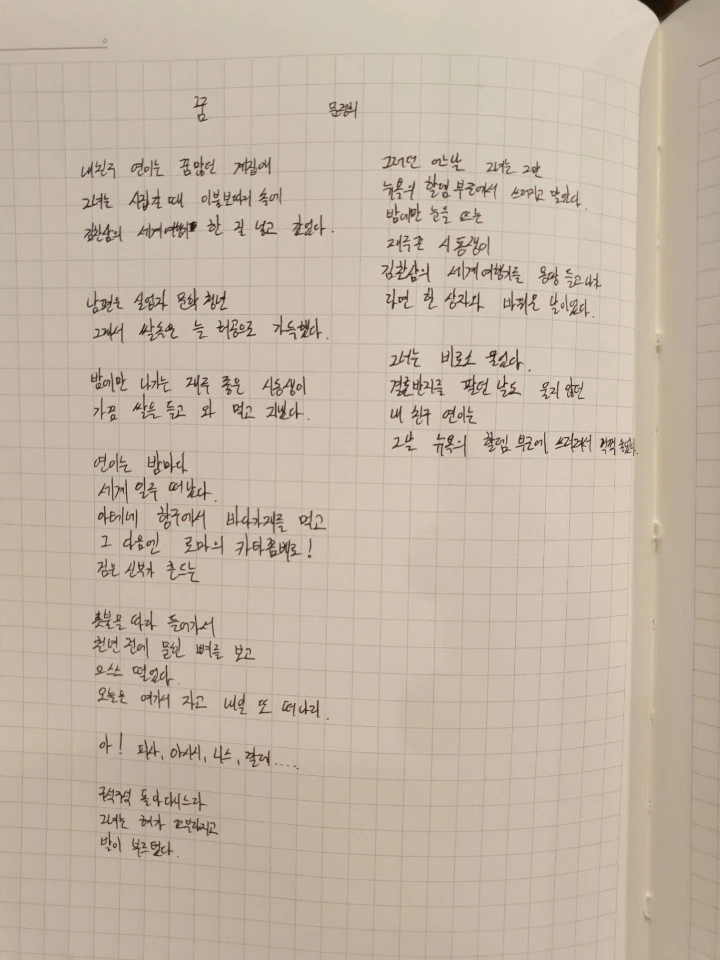 꿈
문정희
내친구 연이는 꿈많던 계집애
그녀는 시집올 때 이불보따리 속에
김찬삼의 세계여행기 한 질 넣고 왔었다.
남편은 실업자 문학 청년
그래서 쌀독은 늘 허공으로 가득했다.
밤에만 나가는 재주 좋은 시동생이
가끔 쌀을 들고 와 먹고 지냈다.
연이는 밤마다
세계 일주 떠났다.
아테네 항구에서 바다가재를 먹고
그 다음엔 로마의 카타콤베로!
검은 신부가 흔드는
촛불을 따라 들어가서
천년 전에 묻힌 뼈를 보고
으스스 떨었다.
오늘은 여기서 자고 내일 또 떠나리.
아! 피사, 아시시, 니스, 깔레.....
구석구석 돌아다니느라
그녀는 혀가 꼬부라지고
발이 부르텄다.
그러던 어느날 그녀는 그만
뉴욕의 할렘 부근에서 쓰러지고 말았다.
밤에만 눈을 뜨는
재주꾼 시동생이
김찬삼의 세계여행기를 몽땅 들고 나가
라면 한 상자와 바꿔온 날이었다.
그녀는 비로소 울었다.
결혼반지를 팔던 날도 울지 않던
내 친구 연이는
그날 뉴욕의 할렘 부근에 쓰러져서 꺽꺽 울었다.